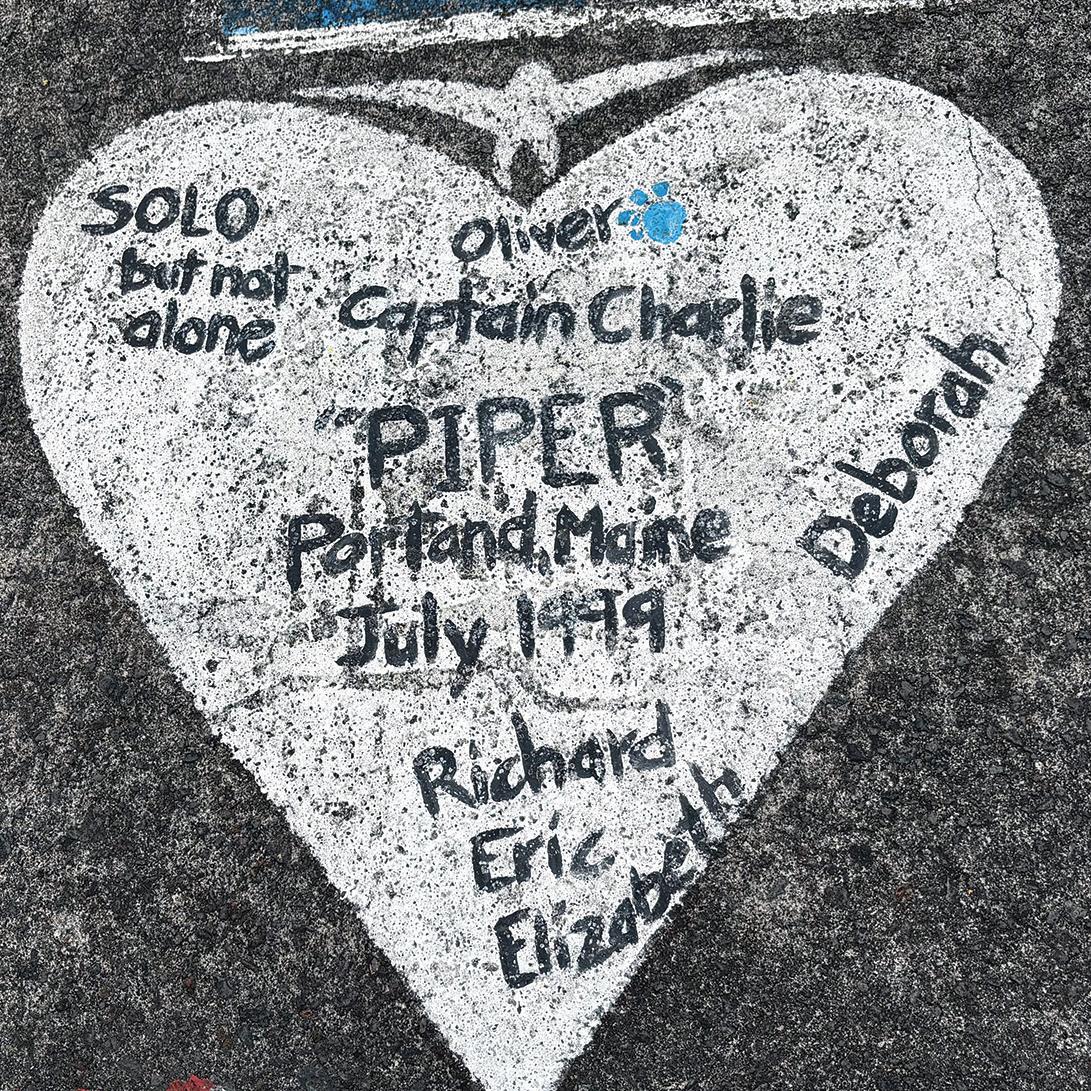 SOLO
but not
alone
Oliver
Captain Charlie
"PIPER"
Portland, Maine
July 1999
Deborah
Richard
Eric
Elizabeth